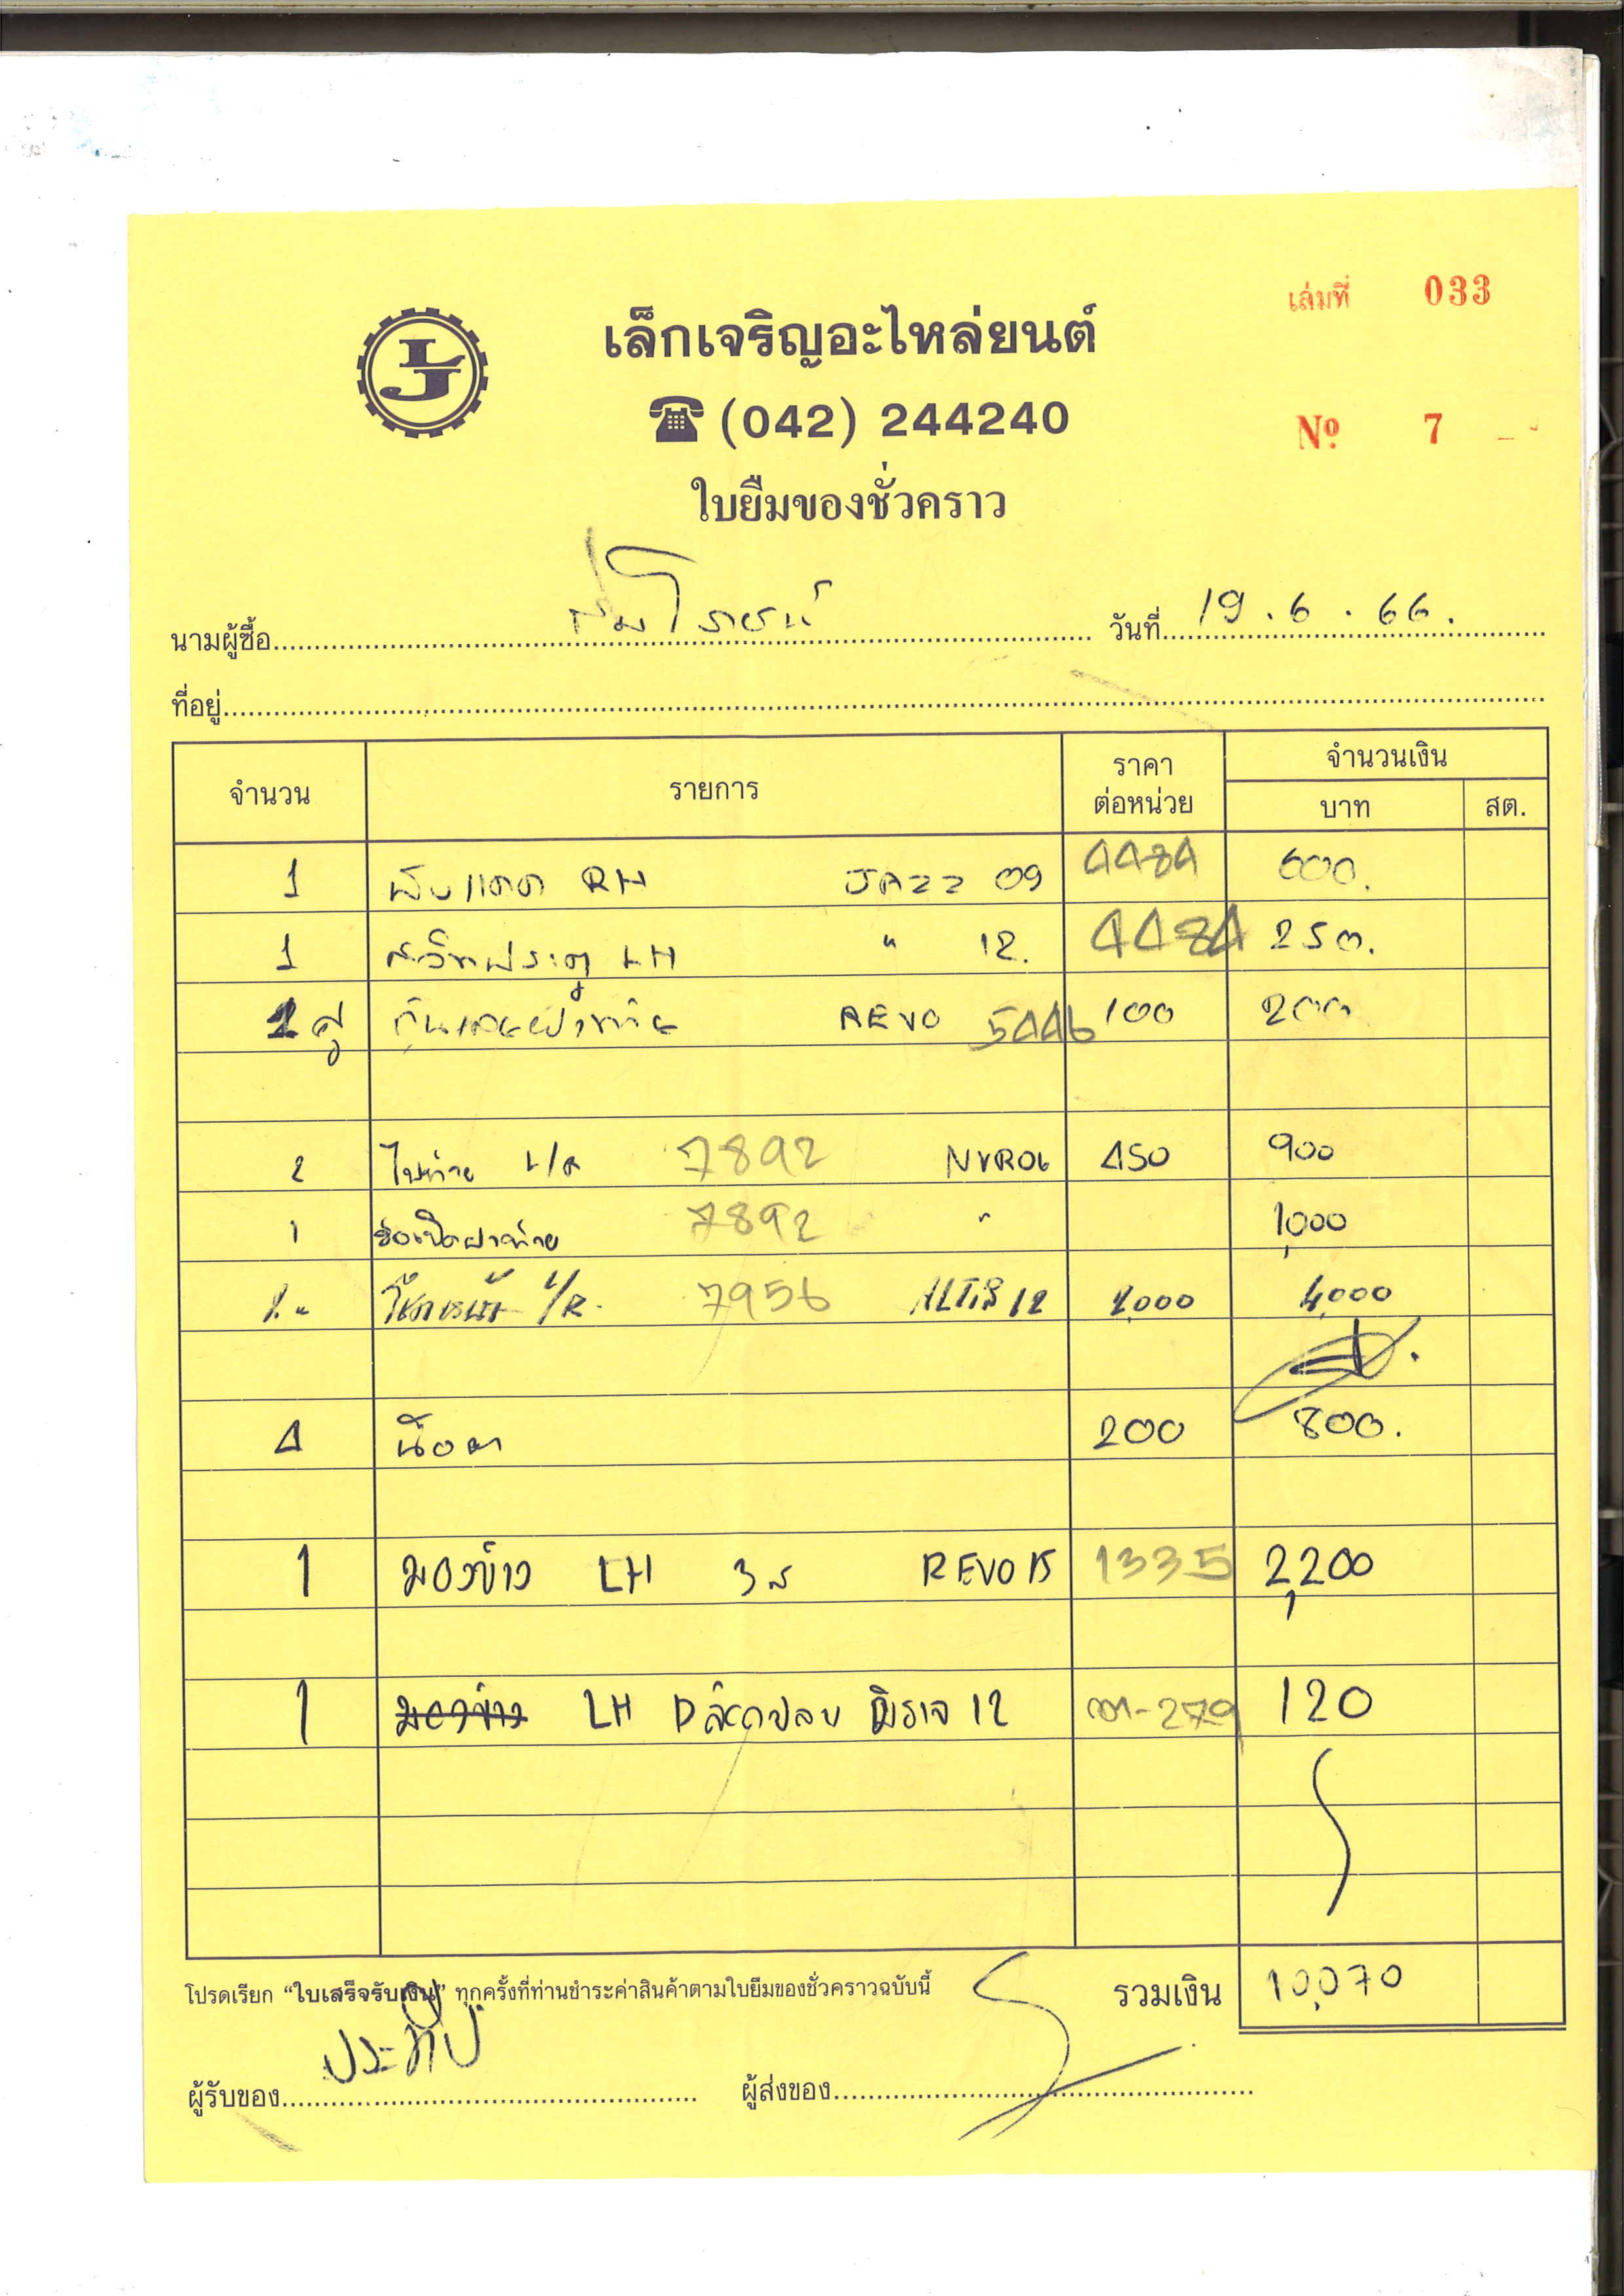 เล่มที่ 033
เล็กเจริญอะไหล่ยนต์
(042) 244240
Nº 7
ใบยืมของชั่วคราว
นามผู้ซื้อ วันที่ 19.6.66.
ที่อยู่
จำนวน รายการ ราคาต่อหน่วย จำนวนเงิน
บาท สต.
1 RH JAZZ 09 4484 600.
1 สวิทประตู LH " 12. 4484 250.
2 คู่ REVO 5446 100 200
2 ไฟท้าย L/R 7892 NVR06 450 900
1 มือเปิดฝาท้าย 7892 " 1,000
โช๊คหน้า L/R. 7956 ALTIS 12 2,000 4,000
4 น็อต 200 800.
1 มองข้าง LH 3ส REVO 15 1335 2,200
1 มองข้าง LH มิราจ 12 279 120
โปรดเรียก “ใบเสร็จรับเงิน” ทุกครั้งที่ท่านชำระค่าสินค้าตามใบยืมของชั่วคราวฉบับนี้ รวมเงิน 10,070
ผู้รับของ ประทีป ผู้ส่งของ